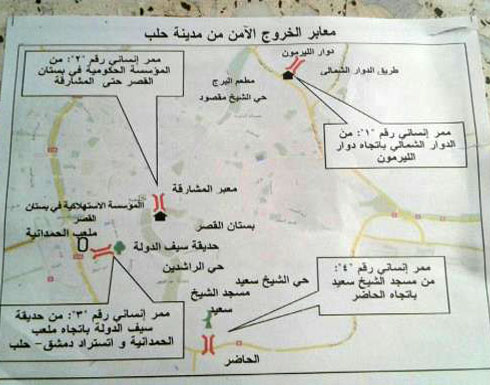 معابر الخروج الآمن من مدينة حلب
ممر إنساني رقم "٢": من
المؤسسة الحكومية في بستان
القصر حتى المشارقة
دوار الليرمون
طريق الدوار الشمالي
مطعم البرج
حي الشيخ مقصود
ممر إنساني رقم "١": من
الدوار الشمالي باتجاه دوار
الليرمون
معبر المشارقة
المؤسسة الاستهلاكية في بستان
القصر
بستان القصر
ملعب الحمدانية
حديقة سيف الدولة
حي الراشدين
حي الشيخ سعيد
مسجد الشيخ
سعيد
ممر إنساني رقم "٤":
من مسجد الشيخ سعيد
باتجاه الحاضر
ممر إنساني رقم "٣": من حديقة
سيف الدولة باتجاه ملعب
الحمدانية و اتستراد دمشق- حلب
الحاضر